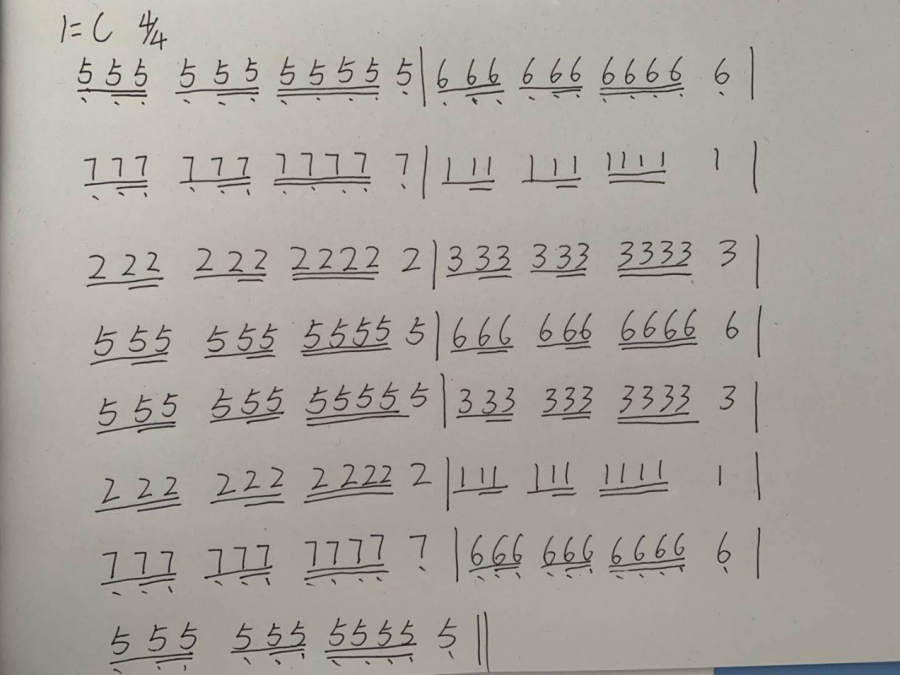 1=C 4/4
555 555 5555 5 | 666 666 6666 6 |
777 777 7777 7 | 111 111 1111 1 |
222 222 2222 2 | 333 333 3333 3 |
555 555 5555 5 | 666 666 6666 6 |
555 555 5555 5 | 333 333 3333 3 |
222 222 2222 2 | 111 111 1111 1 |
777 777 7777 7 | 666 666 6666 6 |
555 555 5555 5 ||